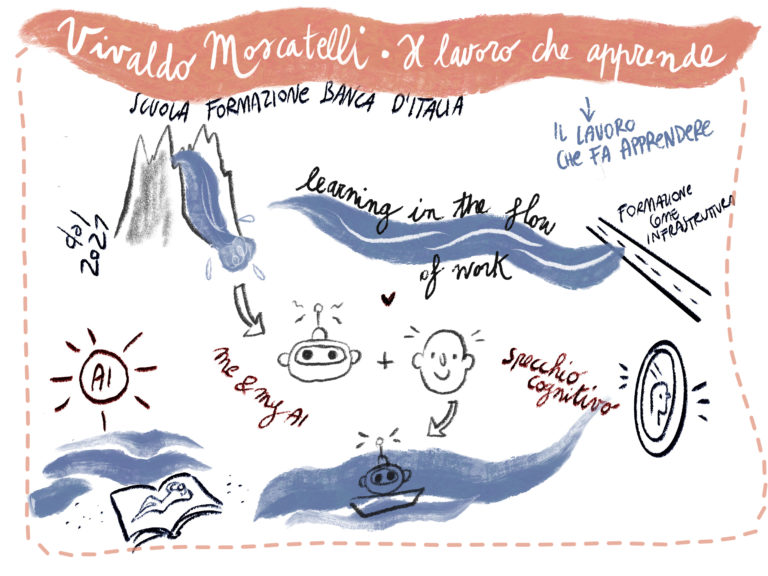 Vivaldo Moscatelli • Il lavoro che apprende
SCUOLA FORMAZIONE BANCA D'ITALIA
IL LAVORO
CHE FA APPRENDERE
learning in the flow
of work
FORMAZIONE
COME
INFRASTRUTTURA
dal
2027
AI
me & my AI
+
specchio
cognitivo